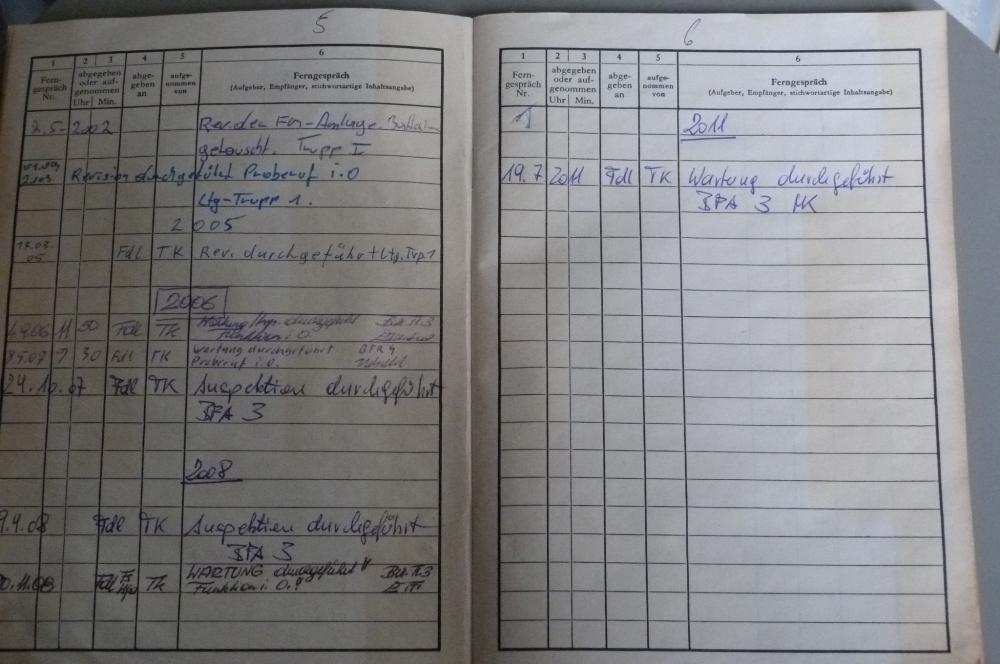 5
1 2 3 4 5 6
Fern-
gespräch
Nr.
abgegeben
oder auf-
genommen
Uhr Min.
abge-
geben
an
aufge-
nommen
von
Ferngespräch
(Aufgeber, Empfänger, stichwortartige Inhaltsangabe)
2.5. 2002 Rev. der Fm-Anlage.
getauscht. Trupp I
Revision durchgeführt Proberuf i.O
Ltg-Trupp 1.
2005
17.03.
05 Fdl TK Rev. durchgeführt Ltg. Trp 1
2006
06 11 50 Fdl TK
Funktion i.O.
07 9 30 Fdl TK Wartung durchgeführt
Proberuf i.O.
24.10.07 Fdl TK Inspektion durchgeführt
BFA 3
2008
9.4.08 Fdl TK Inspektion durchgeführt
BFA 3
0.11.08 Fdl TK WARTUNG durchgeführt"
Funktion i.O."
6
1 2 3 4 5 6
Fern-
gespräch
Nr.
abgegeben
oder auf-
genommen
Uhr Min.
abge-
geben
an
aufge-
nommen
von
Ferngespräch
(Aufgeber, Empfänger, stichwortartige Inhaltsangabe)
2011
19.7 2011 Fdl TK Wartung durchgeführt
BFA 3 MK